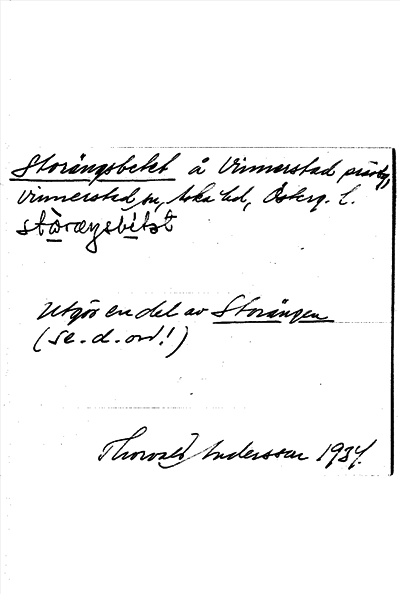 Storängsbetet å Vinnerstad
Vinnerstad sn, Aska hd, Österg. l.
Utgör en del av Storängen
(se. d. ord!)
Thorvald Andersson 1934.